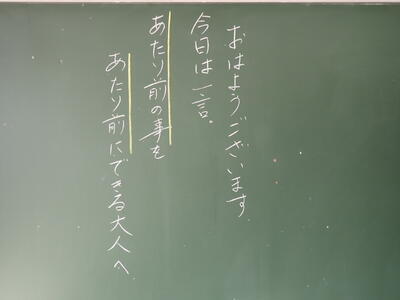 おはようございます
今日は一言。
あたり前の事を
あたり前にできる大人へ